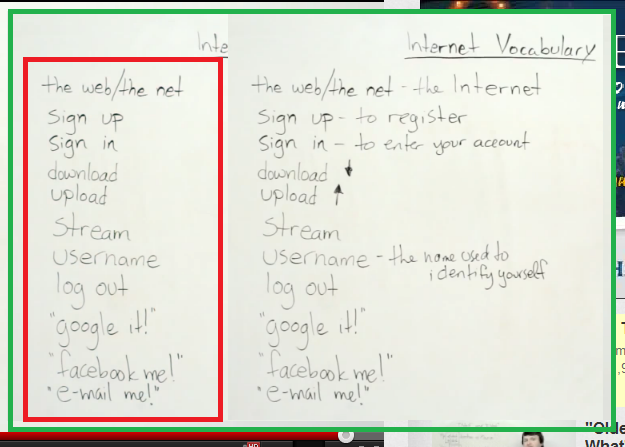 Inte
the web/the net
Sign up
Sign in
download
upload
Stream
Username
log out
"google it!"
"facebook me!"
"e-mail me!"
Internet Vocabulary
the web/the net - the Internet
Sign up - to register
Sign in - to enter your account
download
upload
Stream
Username - the name used to
identify yourself
log out
"google it!"
"facebook me!"
"e-mail me!"
HD
"Olde
What